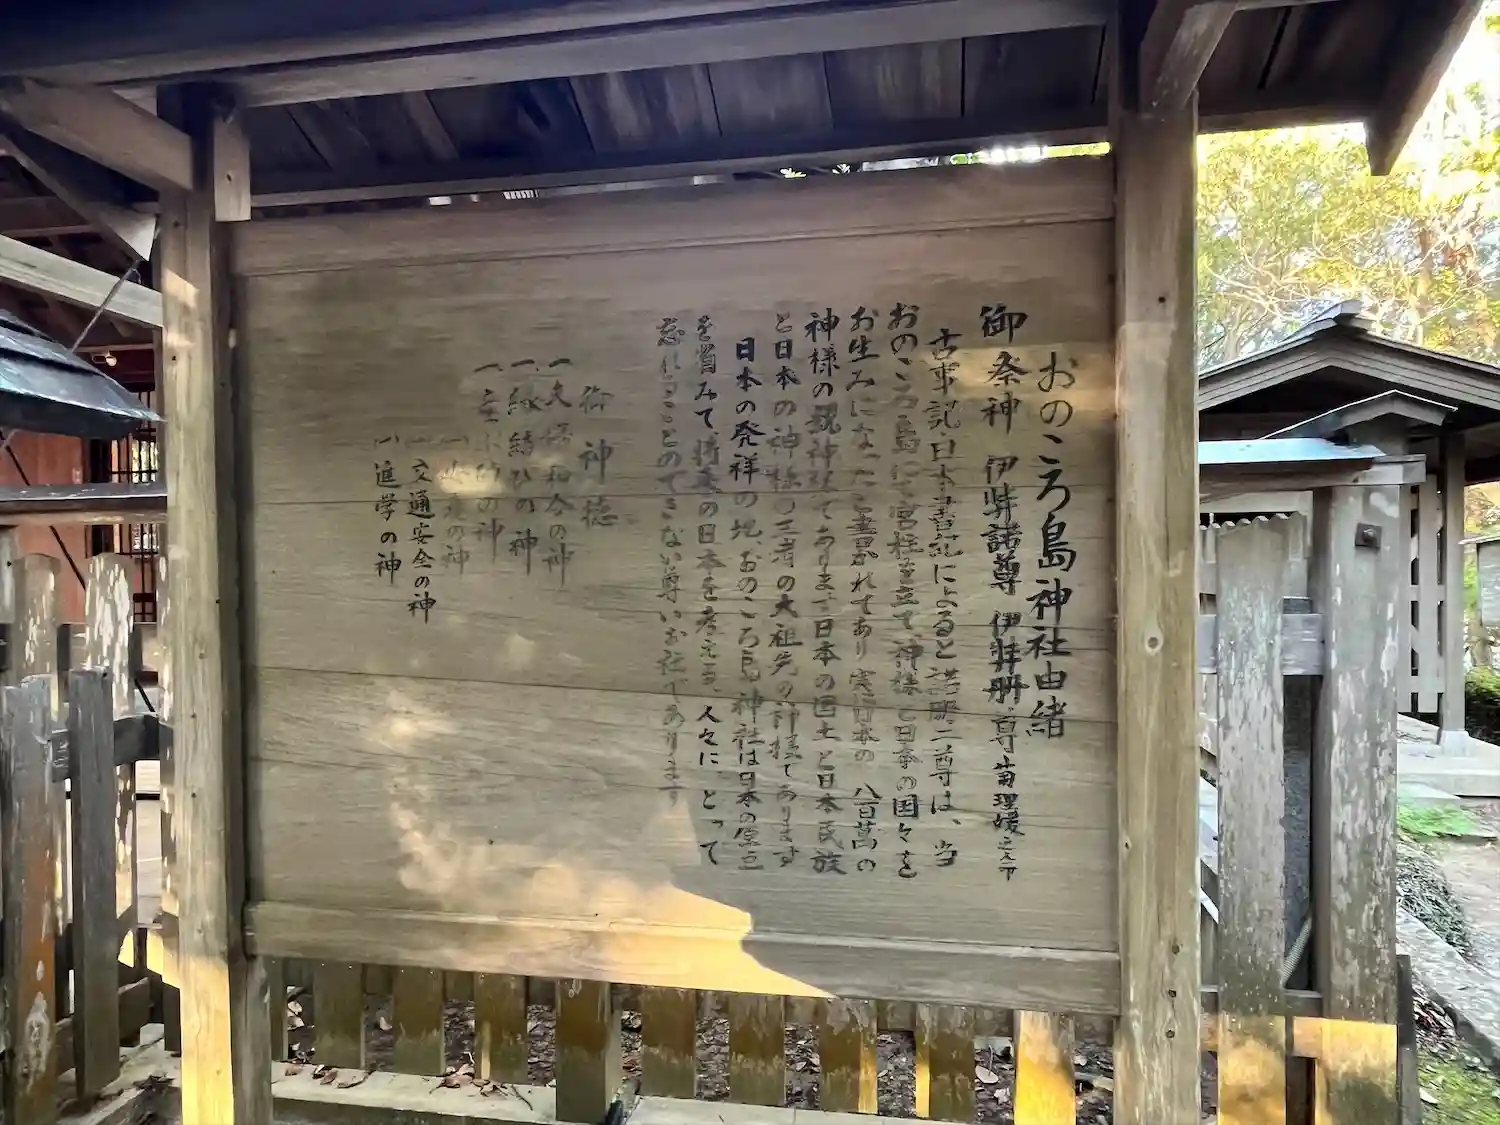 おのころ島神社由緒
御祭神 伊弉諾尊 伊弉冊尊 菊理媛
古事記・日本書紀によると 諾冊二尊は、当
おのころ島にて宮柱を立て、神様と日本の国々を
お生みになったと書かれてあり 実に日本の 八百萬の
神様の親神様であります 日本の国土と日本民族
と日本の神様の三者の大祖先の神様であります
日本の発祥の地、おのころ島神社は日本の原点
を省みて、将来の日本を考える、人々に とって
忘れることのできない尊いお社であります
御神徳
一、夫婦和合の神
一、縁結びの神
一、の神
一、の神
一、交通安全の神
一、進学の神